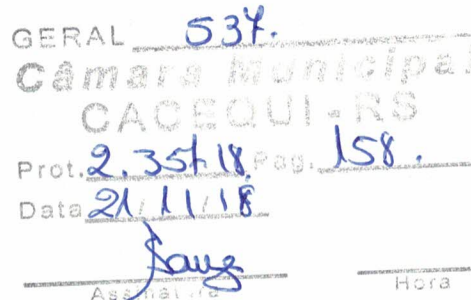 GERAL 537.
Câmara Municipal
CACEQUI - RS
Prot. 2.357.18 Pag. 158.
Data 21/11/18
Assinatura Hora